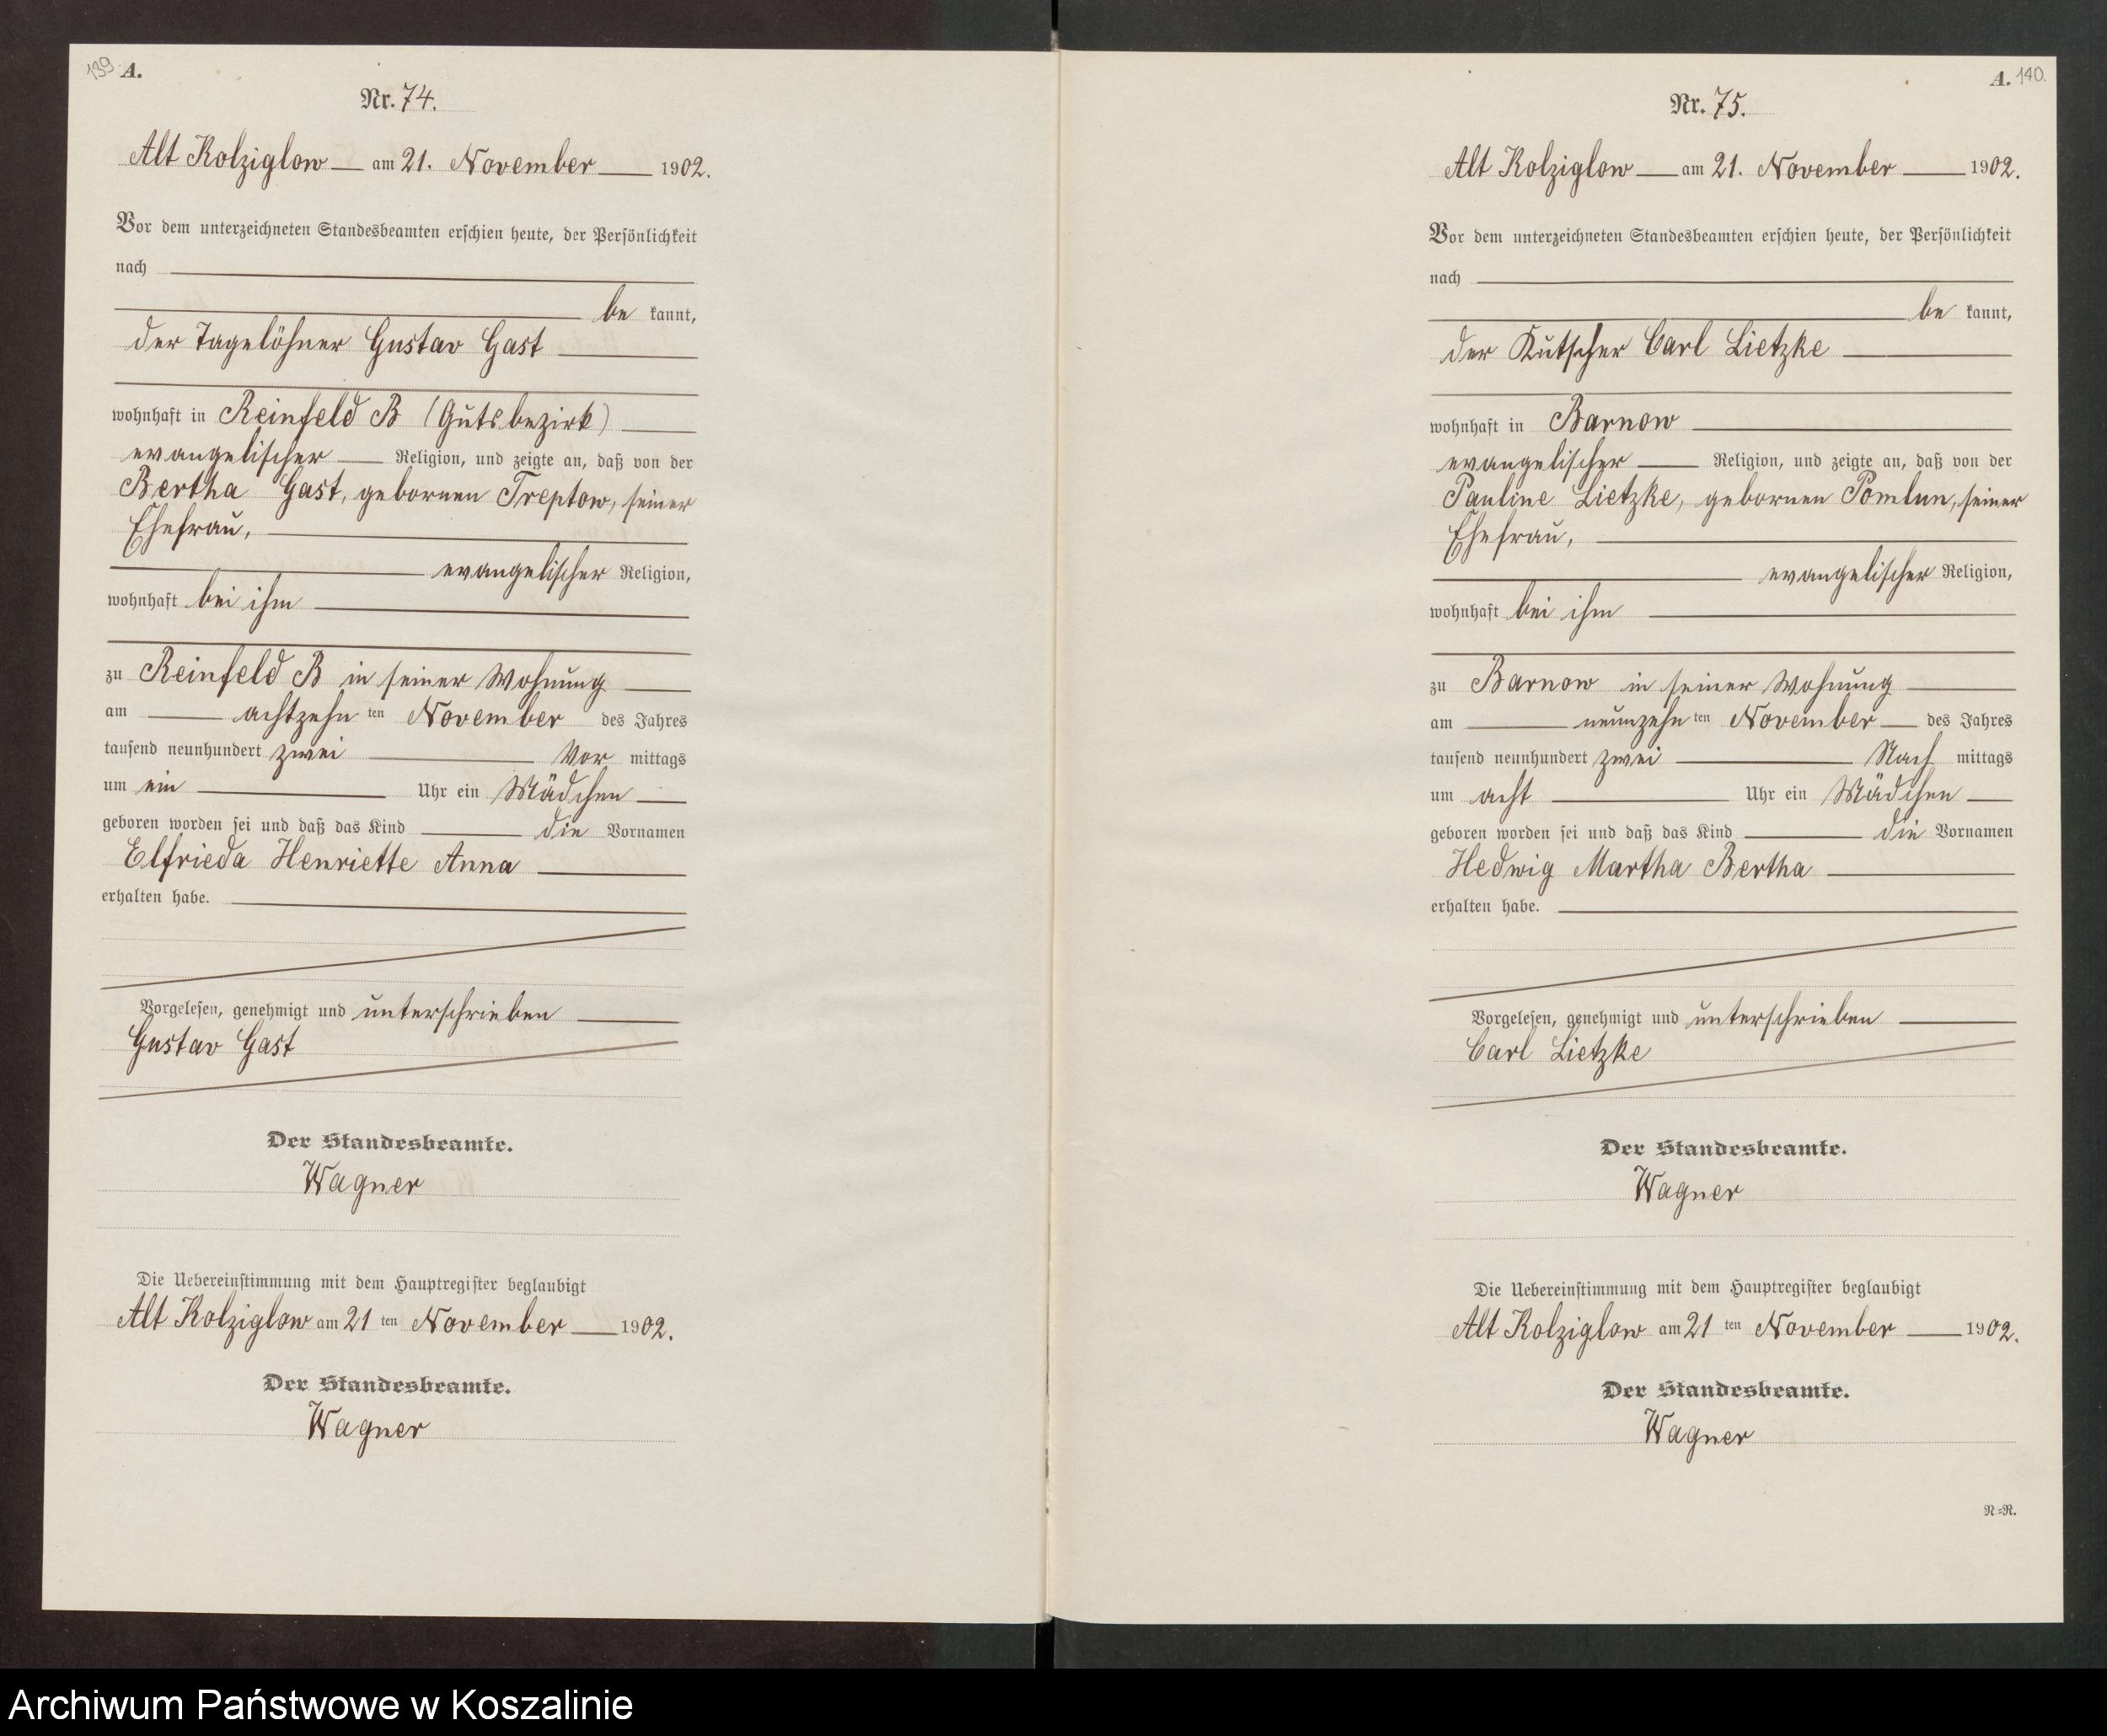 139 A.
Nr. 74.
Alt Kolziglow am 21. November 1902.
Vor dem unterzeichneten Standesbeamten erschien heute, der Persönlichkeit
nach
be kannt,
der Tagelöhner Gustav Gast
wohnhaft in Reinfeld B (Gutsbezirk)
evangelischer Religion, und zeigte an, daß von der
Bertha Gast, gebornen Treptow, seiner
Ehefrau,
evangelischer Religion,
wohnhaft bei ihm
zu Reinfeld B in seiner Wohnung
am achtzehn ten November des Jahres
tausend neunhundert zwei Vor mittags
um ein Uhr ein Mädchen
geboren worden sei und daß das Kind die Vornamen
Elfrieda Henriette Anna
erhalten habe.
Vorgelesen, genehmigt und unterschrieben
Gustav Gast
Der Standesbeamte.
Wagner
Die Uebereinstimmung mit dem Hauptregister beglaubigt
Alt Kolziglow am 21 ten November 1902.
Der Standesbeamte.
Wagner
A. 140.
Nr. 75.
Alt Kolziglow am 21. November 1902.
Vor dem unterzeichneten Standesbeamten erschien heute, der Persönlichkeit
nach
be kannt,
der Kutscher Carl Lietzke
wohnhaft in Barnow
evangelischer Religion, und zeigte an, daß von der
Pauline Lietzke, gebornen Pomlun, seiner
Ehefrau,
evangelischer Religion,
wohnhaft bei ihm
zu Barnow in seiner Wohnung
am neunzehn ten November des Jahres
tausend neunhundert zwei Nach mittags
um acht Uhr ein Mädchen
geboren worden sei und daß das Kind die Vornamen
Hedwig Martha Bertha
erhalten habe.
Vorgelesen, genehmigt und unterschrieben
Carl Lietzke
Der Standesbeamte.
Wagner
Die Uebereinstimmung mit dem Hauptregister beglaubigt
Alt Kolziglow am 21 ten November 1902.
Der Standesbeamte.
Wagner
N=R.
Archiwum Państwowe w Koszalinie